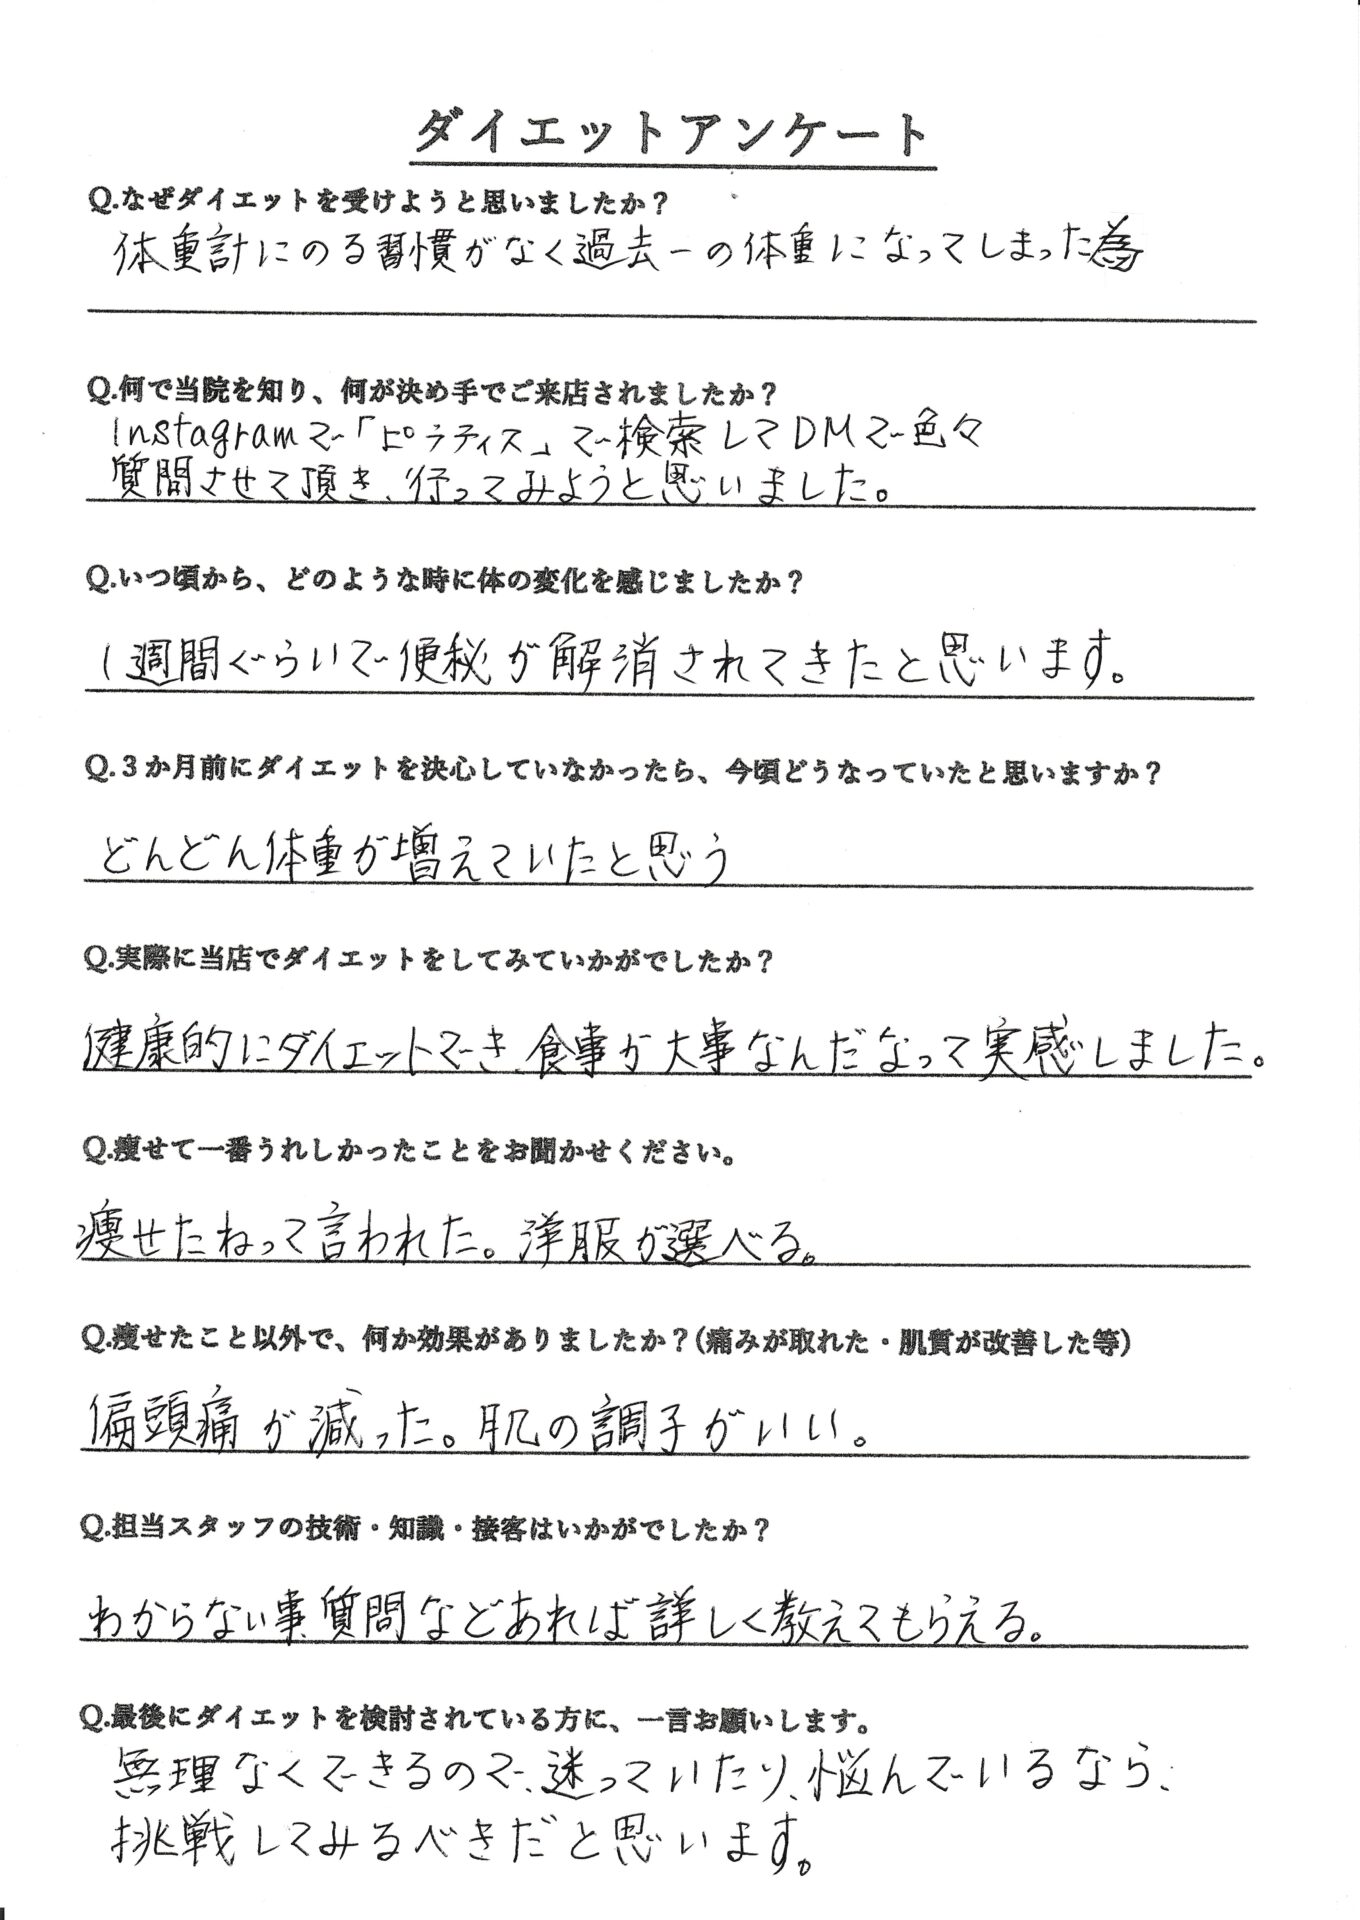 ダイエットアンケート
Q.なぜダイエットを受けようと思いましたか？
体重計にのる習慣がなく過去一の体重になってしまった為
Q.何で当院を知り、何が決め手でご来店されましたか？
Instagramで「ピラティス」で検索してDMで色々
質問させて頂き、行ってみようと思いました。
Q.いつ頃から、どのような時に体の変化を感じましたか？
1週間ぐらいで便秘が解消されてきたと思います。
Q.３か月前にダイエットを決心していなかったら、今頃どうなっていたと思いますか？
どんどん体重が増えていたと思う
Q.実際に当店でダイエットをしてみていかがでしたか？
健康的にダイエットでき、食事が大事なんだなって実感しました。
Q.痩せて一番うれしかったことをお聞かせください。
痩せたねって言われた。洋服が選べる。
Q.痩せたこと以外で、何か効果がありましたか？(痛みが取れた・肌質が改善した等)
偏頭痛が減った。肌の調子がいい。
Q.担当スタッフの技術・知識・接客はいかがでしたか？
わからない事、質問などあれば詳しく教えてもらえる。
Q.最後にダイエットを検討されている方に、一言お願いします。
無理なくできるので、迷っていたり、悩んでいるなら、
挑戦してみるべきだと思います。